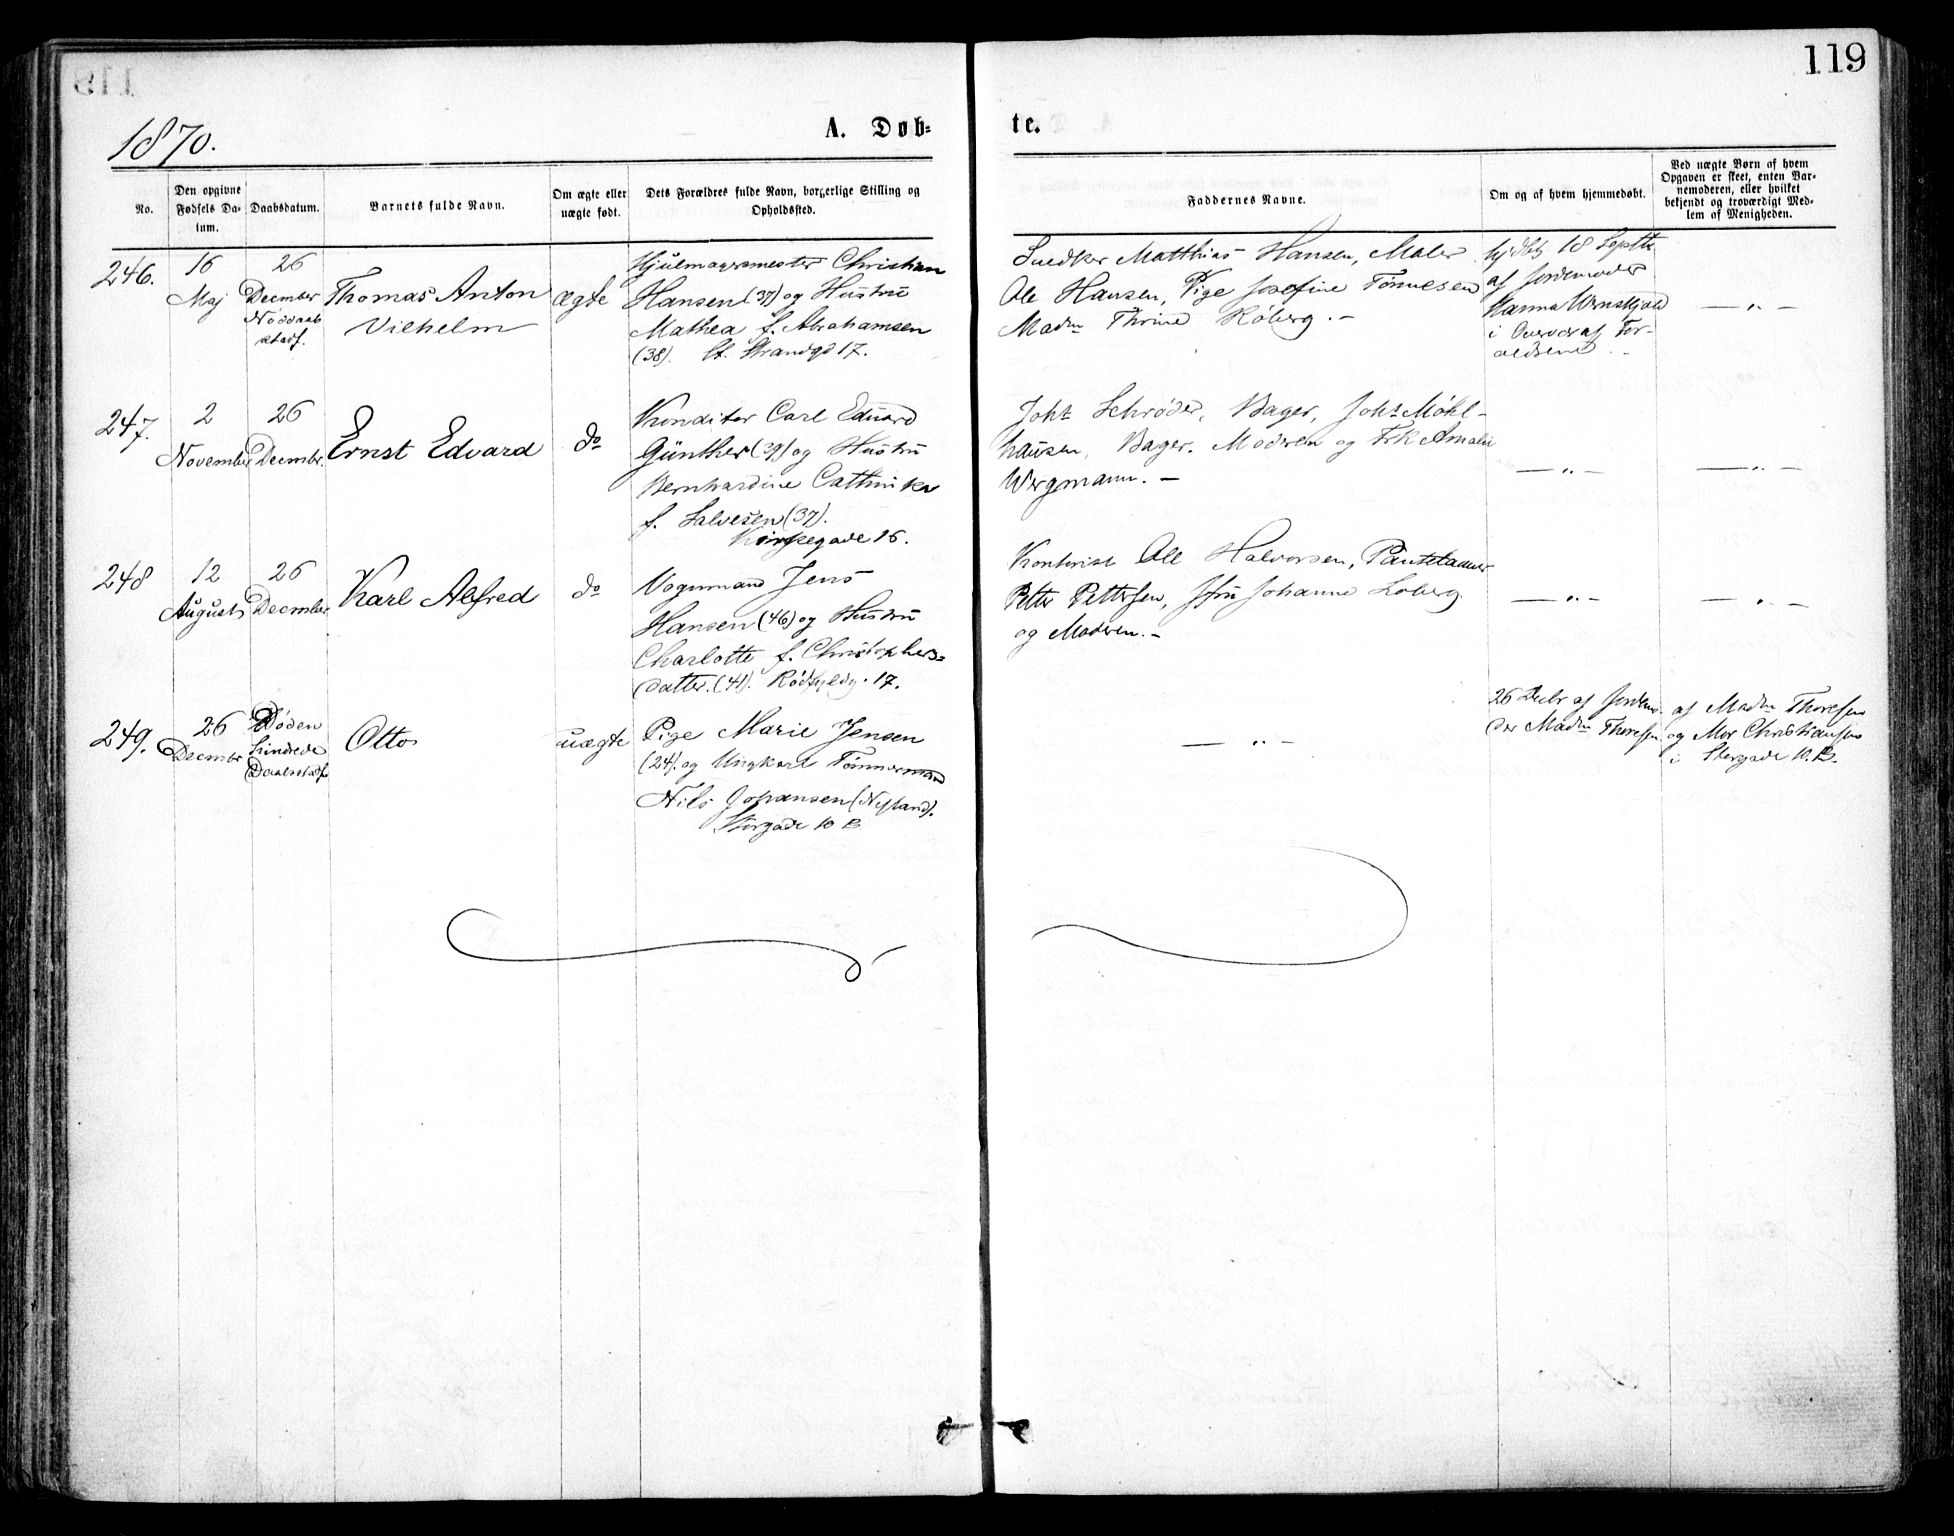 119
1870.
A. Døb-
te.
No.
Den opgivne
Fødsels Da-
tum.
Daabsdatum.
Barnets fulde Navn.
Om ægte eller
uægte født.
Dets Forældres fulde Navn, borgerlige Stilling og
Opholdssted.
Faddernes Navne.
Om og af hvem hjemmedøbt.
Ved uægte Børn af hvem
Opgaven er skeet, enten Bar-
nemoderen, eller hvilket
bekjendt og troværdigt Med-
lem af Menigheden.
246.
16
Maj
26
December
Nøddaab
stadf.
Thomas Anton
Vilhelm
ægte
Hjulmagermester Christian
Hansen (37) og Hustru
Mathea f. Abrahamsen
(38). St. Strandgd 17.
Snedker Matthias Hansen, Maler
Ole Hansen, Pige Josefine Tønnesen
Madm Thrine Röberg. –
hjdbt 18 Septbr
af Jordemoder
Hanna
i Overvær af For-
ældrene
— „ —
247.
2
November
26
Decembr.
Ernst Edvard
do
Konditor Carl Eduard
Günther (39) og Hustru
Bernhardine Cathinka
f. Salvesen (37).
Kirkegade 16.
Joh: Schrøder, Bager, Joh: Möhl-
hausen, Bager. Modren og Frk Amalie
Wergmann. –
— „ —
— „ —
248
12
August
26
December
Karl Alfred
do
Vognmand Jens
Hansen (46) og Hustru
Charlotte f. Christophers-
datter. (41). Rødfyldg. 17.
Kontorist Ole Halvorsen, Pantelaaner
Petter Pettersen, Jfru Johanne Loberg
og Moderen. –
— „ —
— „ —
249.
26
Decembr
Døden
hindrede
Daabsstadf.
Otto
uægte
Pige Marie Jensen
(24). og Ungkarl Tømmermand
Nils Johansen (Nyland).
Storgade 10 B
— „ —
26 Decbr af Jordemo-
der Madm Thoresen.
af Madm Thoresen
og Mor Christiansen
i Storgade 10. B.